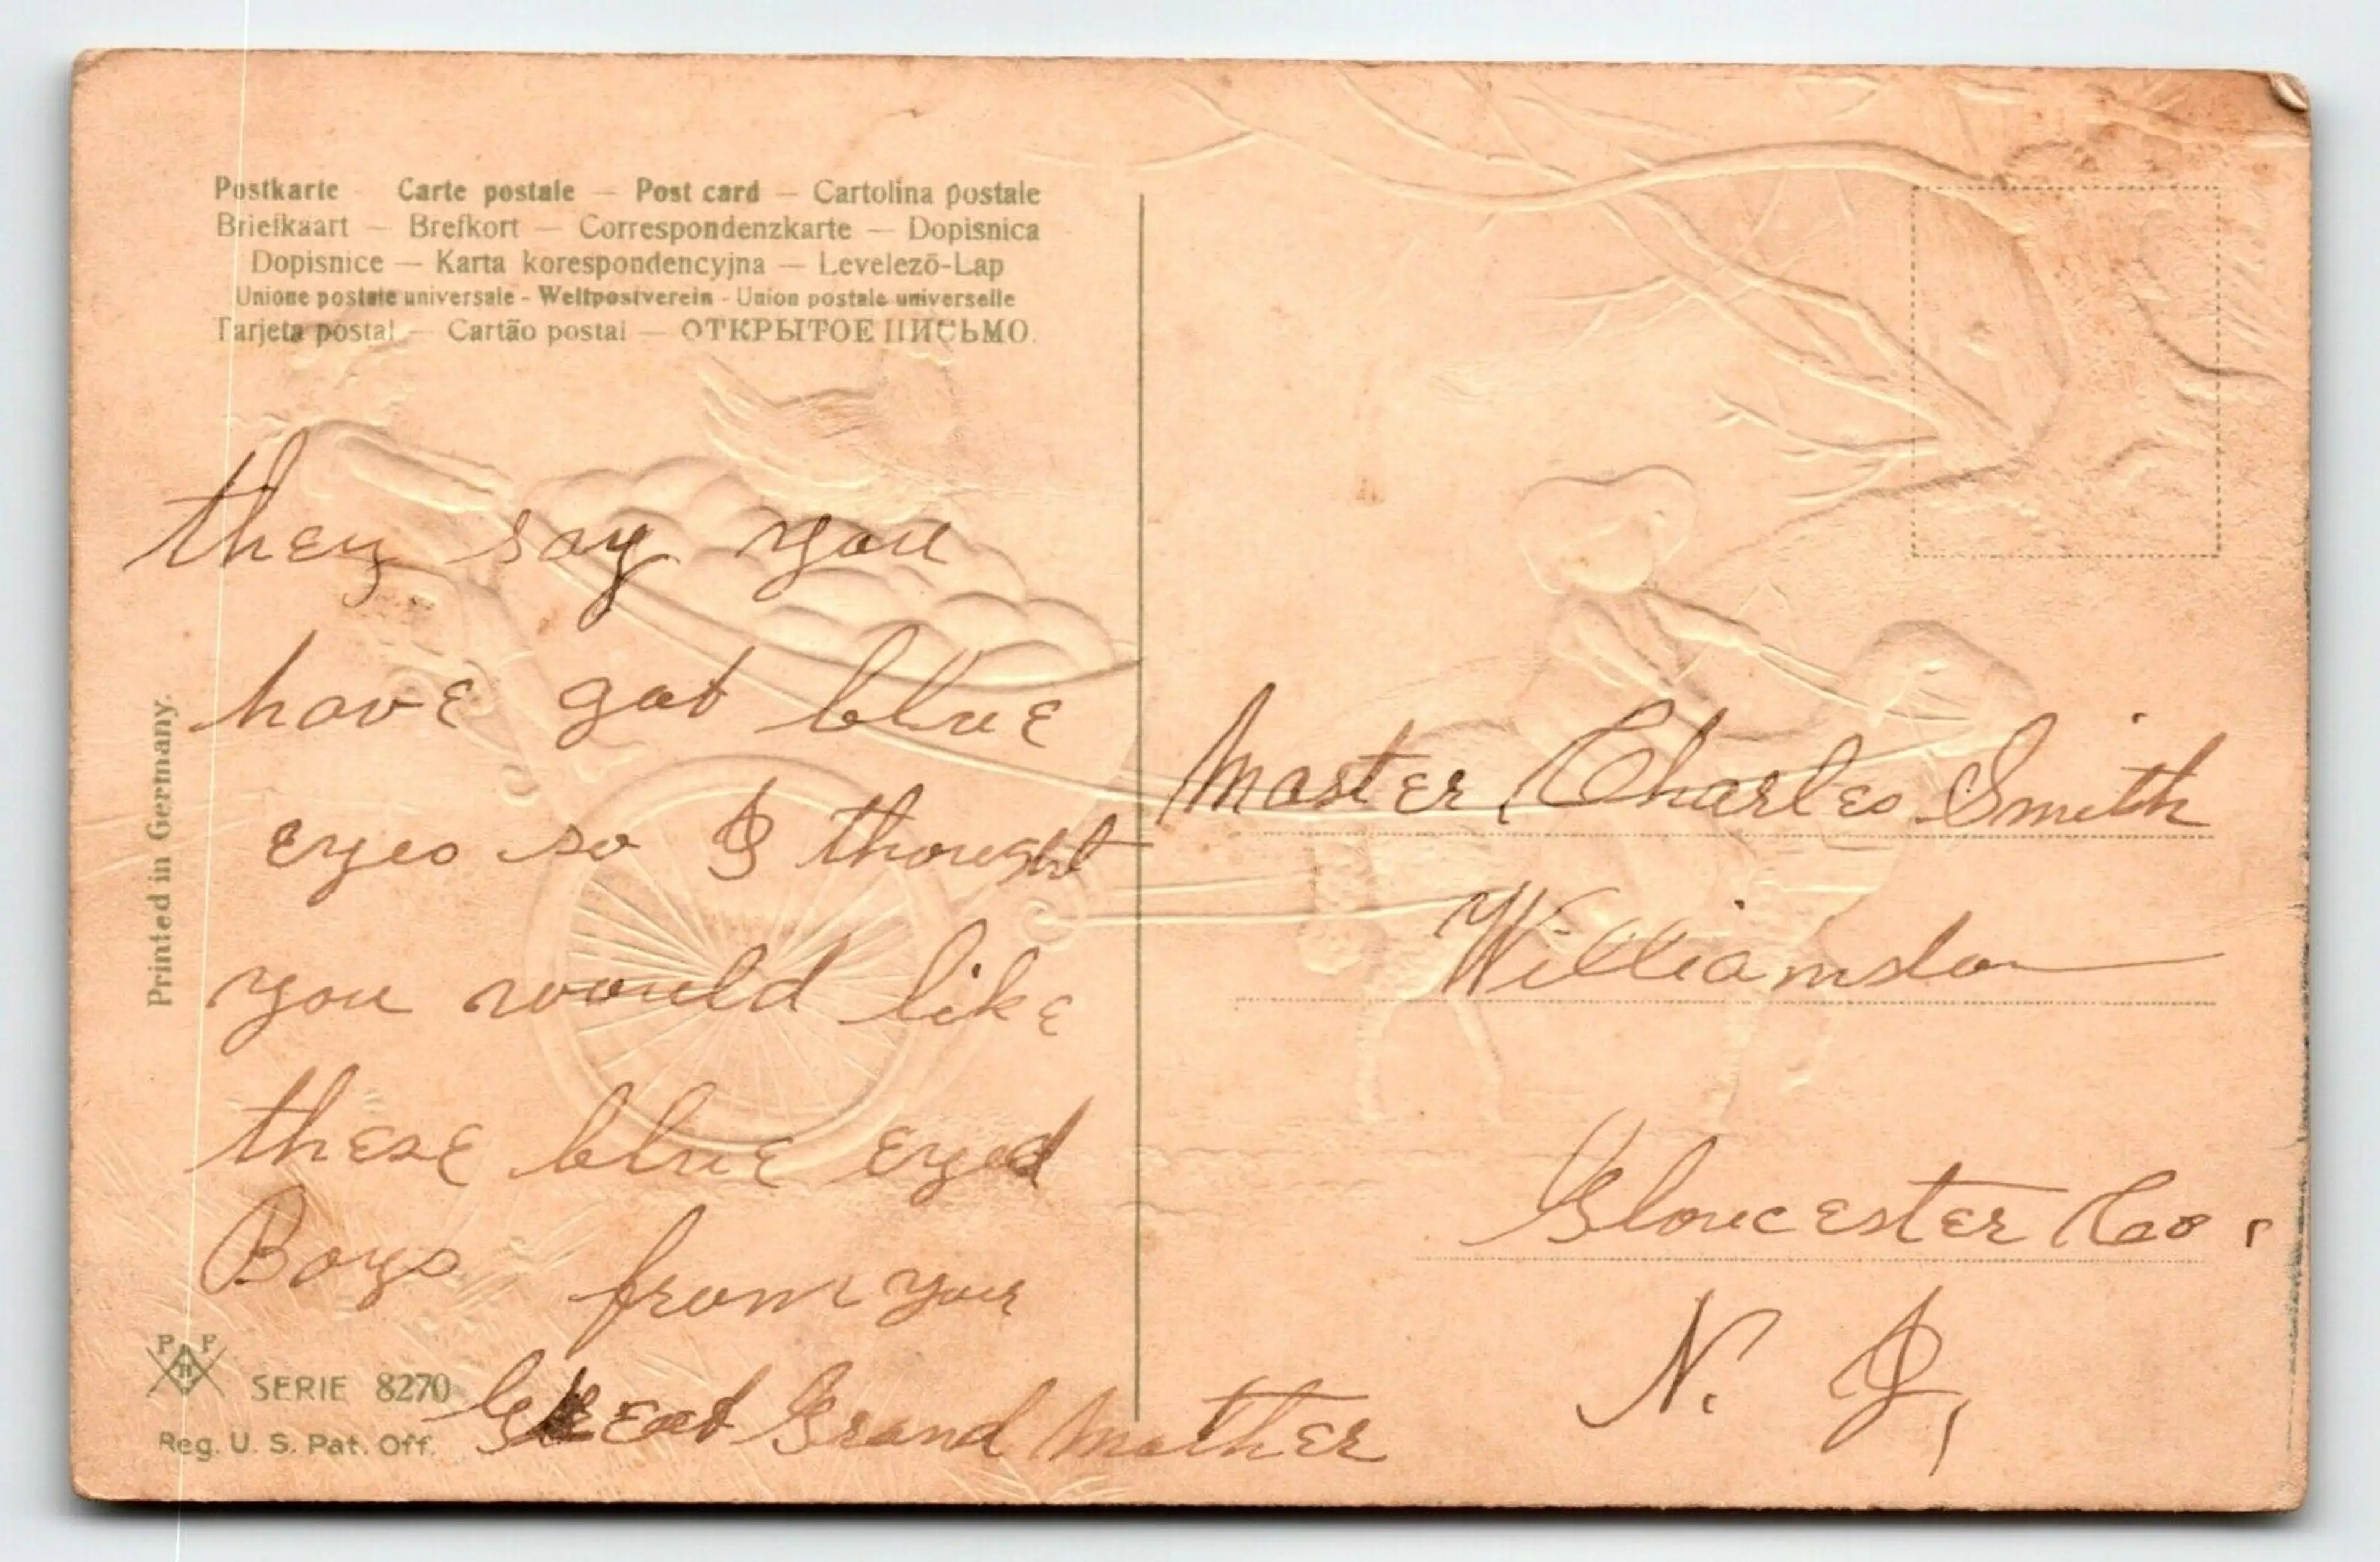 Postkarte – Carte postale – Post card – Cartolina postale
Briefkaart – Brefkort – Correspondenzkarte – Dopisnica
Dopisnice – Karta korespondencyjna – Levelezō-Lap
Unione postale universale - Weltpostverein - Union postale universelle
Tarjeta postal – Cartão postal – ОТКРЫТОЕ ПИСЬМО.
they say you
have got blue
eyes so I thought
you would like
these blue eyed
Boys from your
Great Grand Mother
Printed in Germany.
P P
SERIE 8270
Reg. U. S. Pat. Off.
Master Charles Smith
Williamsto
Gloucester Co.
N. J,